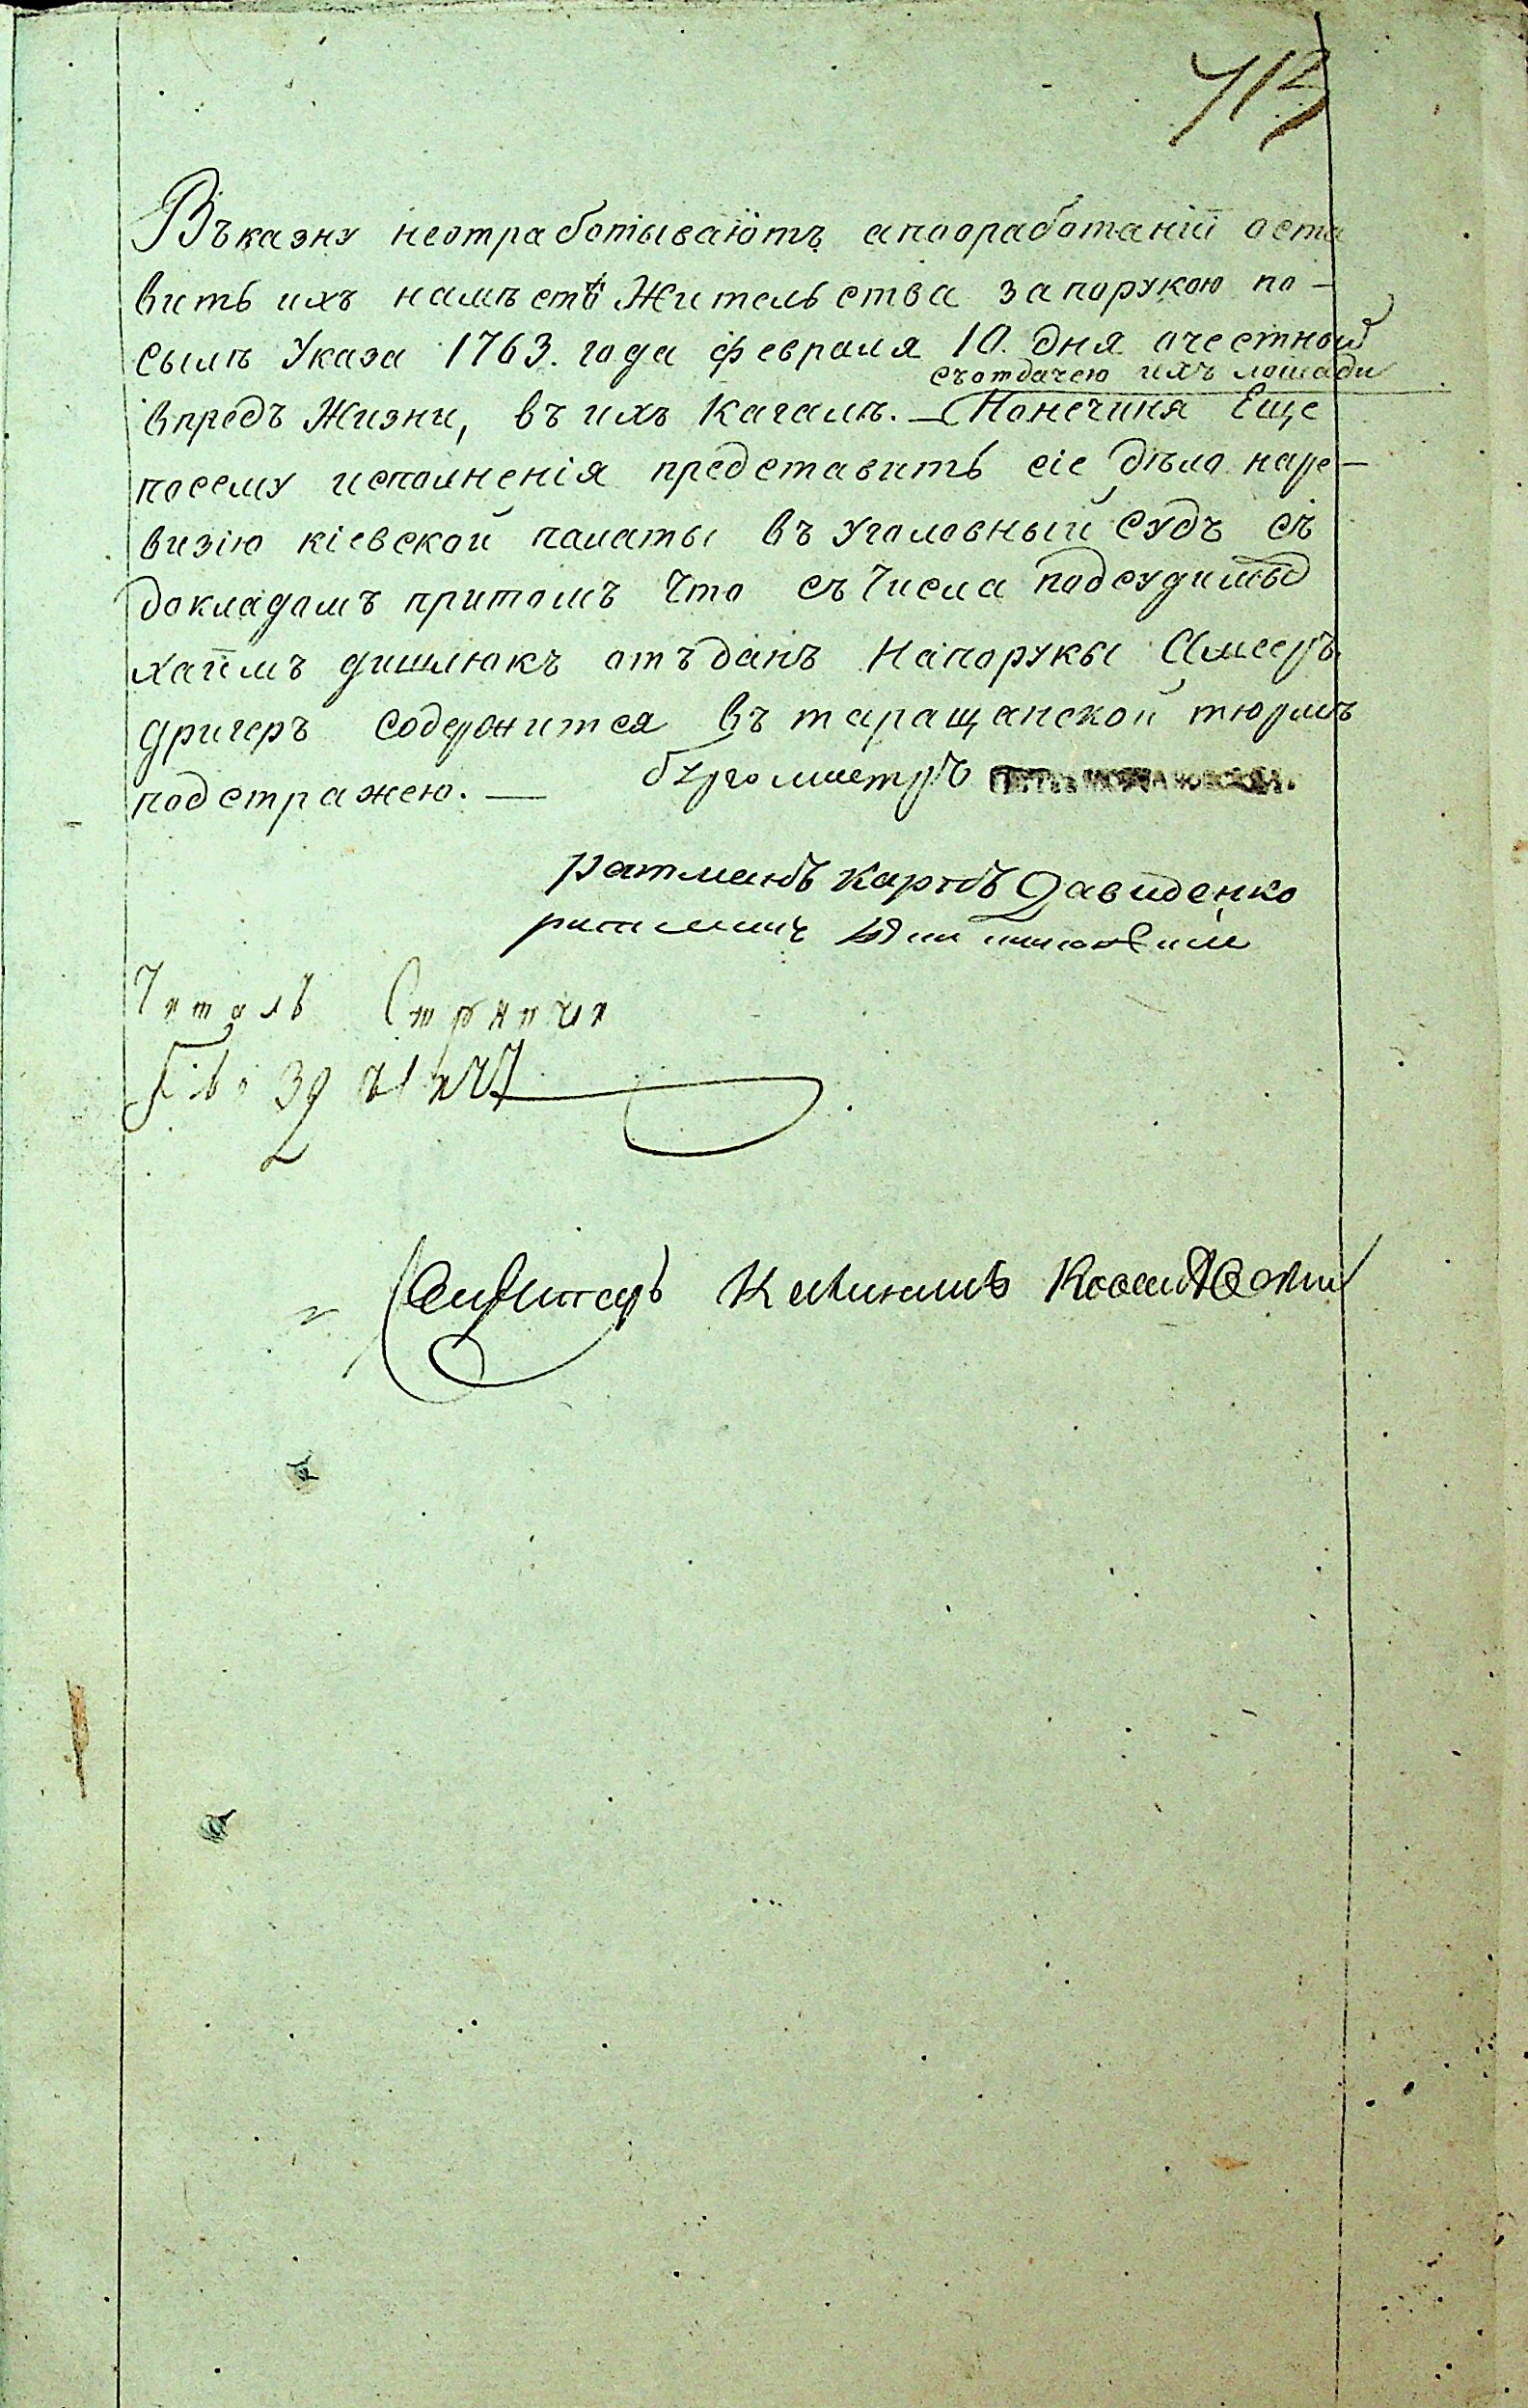 713
Въказну неотработываютъ апоотработаніи оста
вить ихъ намѣстѣ Жительства запорукою по-
сылѣ Указа 1763. года февраля 10. дня очестной
съотдачею ихъ лошади
впредь Жизни, въ ихъ Кагалѣ. — Нонечиня Еще
посему исполненія представить сіе дѣло наре-
визію кіевской палаты въ уголовный судъ съ
докладомъ притомъ что съ числа подсудимыхъ
хаимъ дишлюкъ отъданъ Напоруки
дригеръ содержится въ таращанской тюрмѣ
подстражею. — бургомистръ
ратманъ Карпъ Давиденко
ратманъ
Читалъ Стряпчи